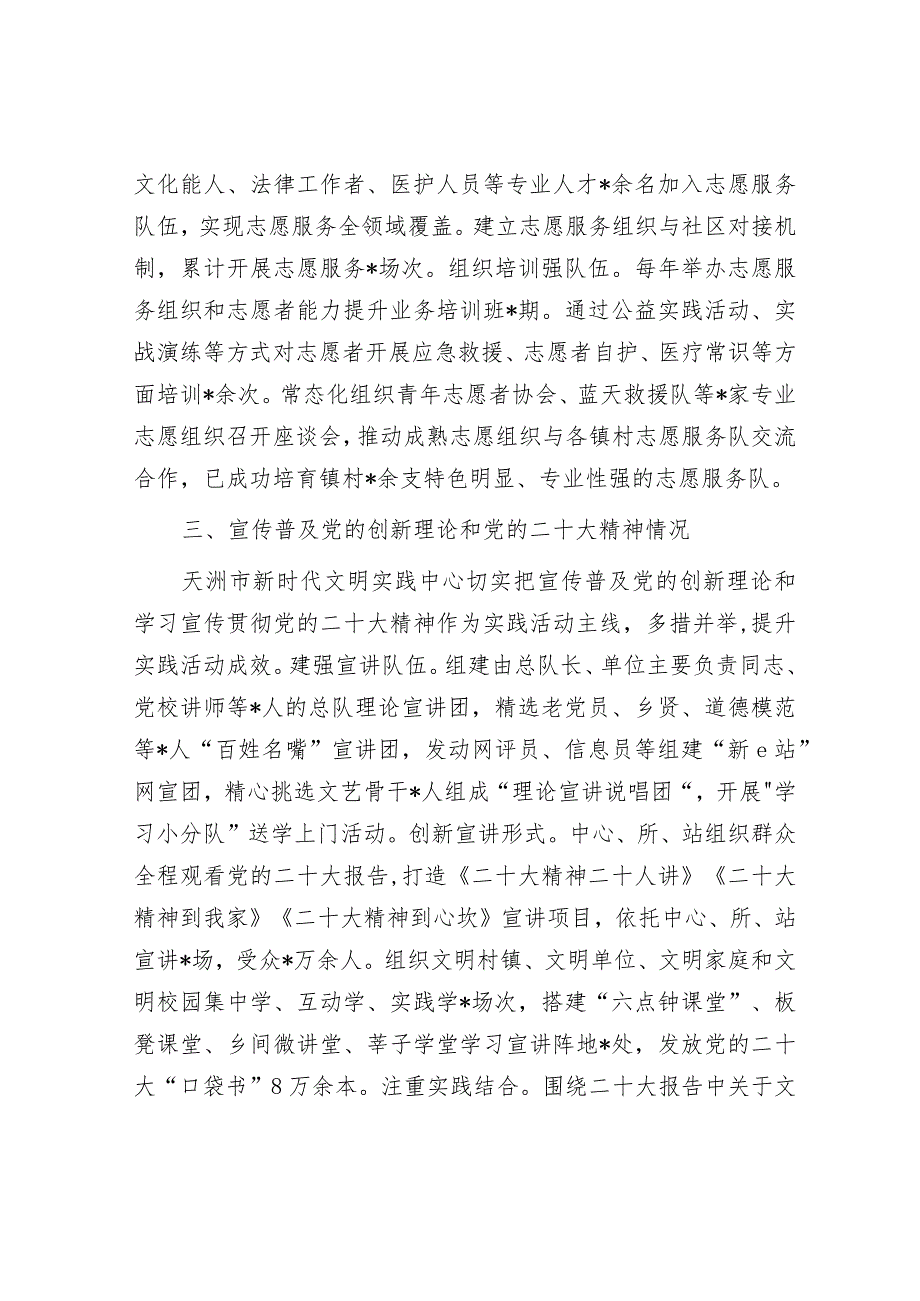 文化能人、法律工作者、医护人员等专业人才*余名加入志愿服务
队伍，实现志愿服务全领域覆盖。建立志愿服务组织与社区对接机
制，累计开展志愿服务*场次。组织培训强队伍。每年举办志愿服
务组织和志愿者能力提升业务培训班*期。通过公益实践活动、实
战演练等方式对志愿者开展应急救援、志愿者自护、医疗常识等方
面培训*余次。常态化组织青年志愿者协会、蓝天救援队等*家专业
志愿组织召开座谈会，推动成熟志愿组织与各镇村志愿服务队交流
合作，已成功培育镇村*余支特色明显、专业性强的志愿服务队。
三、宣传普及党的创新理论和党的二十大精神情况
天洲市新时代文明实践中心切实把宣传普及党的创新理论和
学习宣传贯彻党的二十大精神作为实践活动主线，多措并举,提升
实践活动成效。建强宣讲队伍。组建由总队长、单位主要负责同志、
党校讲师等*人的总队理论宣讲团，精选老党员、乡贤、道德模范
等*人“百姓名嘴”宣讲团，发动网评员、信息员等组建“新 e 站”
网宣团，精心挑选文艺骨干*人组成“理论宣讲说唱团“，开展"学
习小分队”送学上门活动。创新宣讲形式。中心、所、站组织群众
全程观看党的二十大报告,打造《二十大精神二十人讲》《二十大
精神到我家》《二十大精神到心坎》宣讲项目，依托中心、所、站
宣讲*场，受众*万余人。组织文明村镇、文明单位、文明家庭和文
明校园集中学、互动学、实践学*场次，搭建“六点钟课堂”、板
凳课堂、乡间微讲堂、莘子学堂学习宣讲阵地*处，发放党的二十
大“口袋书”8 万余本。注重实践结合。围绕二十大报告中关于文